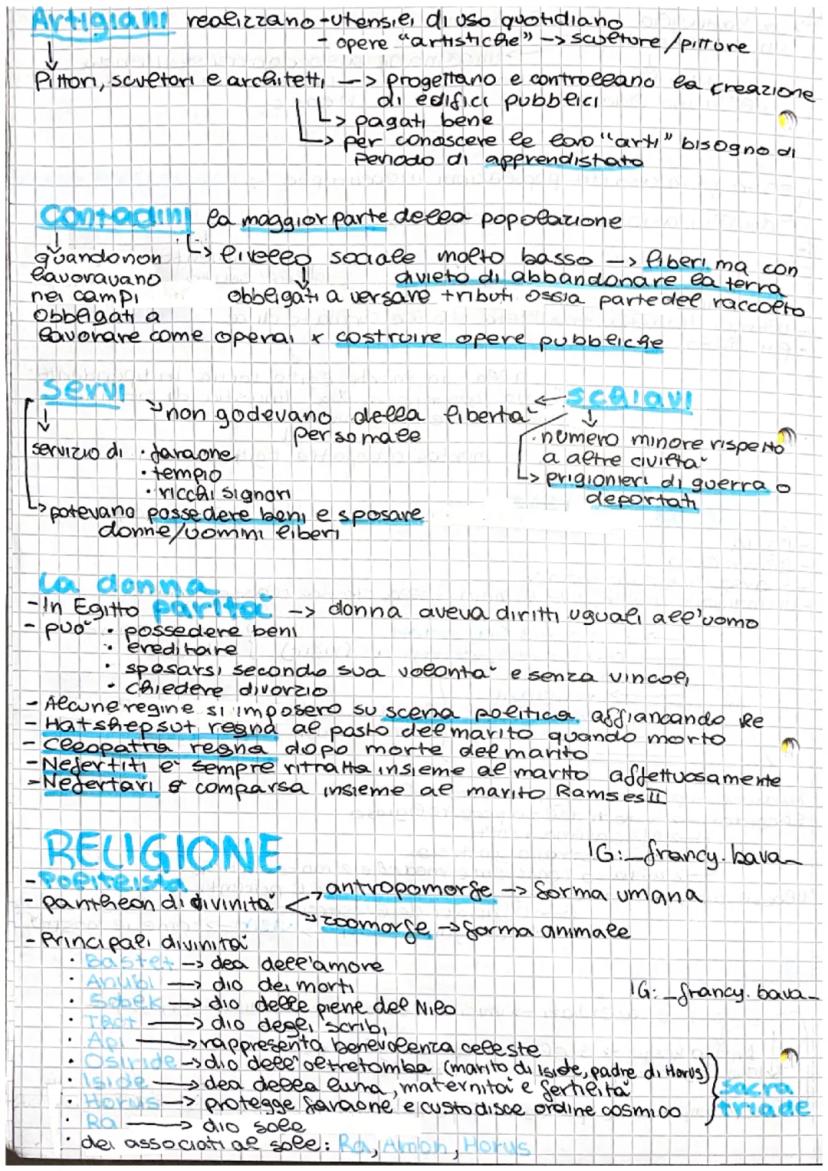 Artigiani realizzano -utensili di uso quotidiano
- opere "artistiche" -> sculture/pitture
Pittori, scultori e architetti -> progettano e controllano la creazione
di edifici pubblici
-> pagati bene
-> per conoscere le loro "arti" bisogno di
periodo di apprendistato
Contadini la maggior parte della popolazione
quando non -> livello sociale molto basso -> liberi ma con
lavoravano divieto di abbandonare la terra
nei campi obbligati a versare tributi ossia parte del raccolto
obbligati a
lavorare come operai x costruire opere pubbliche
Servi <- schiavi
non godevano della libertà
personale
numero minore rispetto
servizio di · faraone a altre civiltà
· tempio -> prigionieri di guerra o
· ricchi signori deportati
-> potevano possedere beni e sposare
donne/uomini liberi
La donna
- In Egitto parità -> donna aveva diritti uguali all'uomo
- può · possedere beni
· ereditare
· sposarsi secondo sua volontà e senza vincoli
· chiedere divorzio
- Alcune regine si imposero su scena politica affiancando Re
- Hatshepsut regna al posto del marito quando morto
- Cleopatra regna dopo morte del marito
- Nefertiti è sempre ritratta insieme al marito affettuosamente
- Nefertari è comparsa insieme al marito Ramses II
RELIGIONE IG:_francy.bava_
- Politeista
- pantheon di divinità -> antropomorfe -> forma umana
-> zoomorfe -> forma animale
- Principali divinità
· Bastet -> dea dell'amore
· Anubi -> dio dei morti IG:_francy.bava_
· Sobek -> dio delle piene del Nilo
· Thot -> dio degli scribi
· Api -> rappresenta benevolenza celeste
· Osiride -> dio dell'oltretomba (marito di Iside, padre di Horus)
· Iside -> dea della luna, maternità e fertilità sacra
· Horus -> protegge faraone e custodisce ordine cosmico triade
· Ra -> dio sole
· dei associati al sole: Ra, Amon, Horus